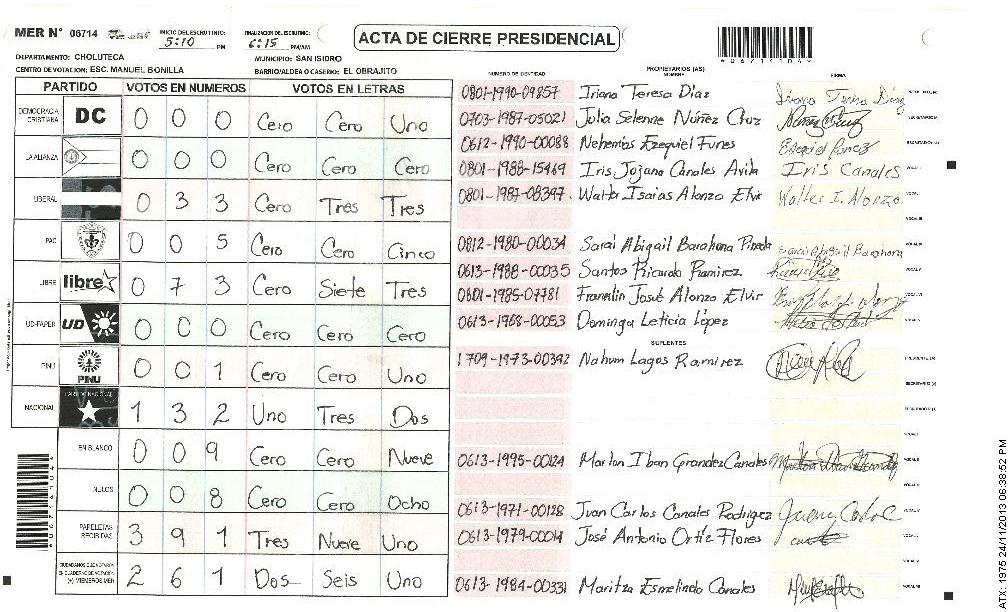 MER N° 06714
INICIO DEL ESCRUTINIO: 5:10 PM
FINALIZACION DEL ESCRUTINIO: 6:15 PM/AM
ACTA DE CIERRE PRESIDENCIAL
DEPARTAMENTO: CHOLUTECA
MUNICIPIO: SAN ISIDRO
CENTRO DE VOTACION: ESC. MANUEL BONILLA
BARRIO/ALDEA O CASERIO: EL OBRAJITO
PARTIDO VOTOS EN NUMEROS VOTOS EN LETRAS
DEMOCRACIA CRISTIANA DC 0 0 0 Cero Cero Uno
LA ALIANZA 0 0 0 Cero Cero Cero
LIBERAL 0 3 3 Cero Tres Tres
PAC 0 0 5 Cero Cero Cinco
LIBRE libre 0 7 3 Cero Siete Tres
UD-FAPER UD 0 0 0 Cero Cero Cero
PINU PINU 0 0 1 Cero Cero Uno
NACIONAL 1 3 2 Uno Tres Dos
EN BLANCO 0 0 9 Cero Cero Nueve
NULOS 0 0 8 Cero Cero Ocho
PAPELETAS RECIBIDAS 3 9 1 Tres Nueve Uno
CIUDADANOS QUE VOTARON EN CUADERNO DE VOTACION (+) MIEMBROS MER 2 6 1 Dos Seis Uno
NUMERO DE IDENTIDAD PROPIETARIOS (AS) NOMBRE FIRMA
0801-1990-09857 Iriana Teresa Diaz
0703-1987-05021 Julia Selenne Núñez Cruz
0612-1990-00088 Nehemías Ezequiel Funes
0801-1988-15469 Iris Jojana Canales Avila Iris Canales
0801-1987-08397 Walter Isaias Alonzo Elvir Walter I. Alonzo
0812-1980-00034 Sarai Abigail Barahona Pineda Sarai Abigail Barahona
0613-1988-00035 Santos Ricardo Ramirez
0801-1985-07781 Franklin Josué Alonzo Elvir
0613-1968-00053 Dominga Leticia López
SUPLENTES
1709-1973-00392 Nahum Lagos Ramirez
0613-1995-00124 Marlon Iban Grandez Canales
0613-1971-00128 Juan Carlos Canales Rodrigez
0613-1979-00014 José Antonio Ortíz Flores
0613-1984-00331 Maritza Esmelinda Canales
ATX: 1975 24/11/2013 06:38:52 PM